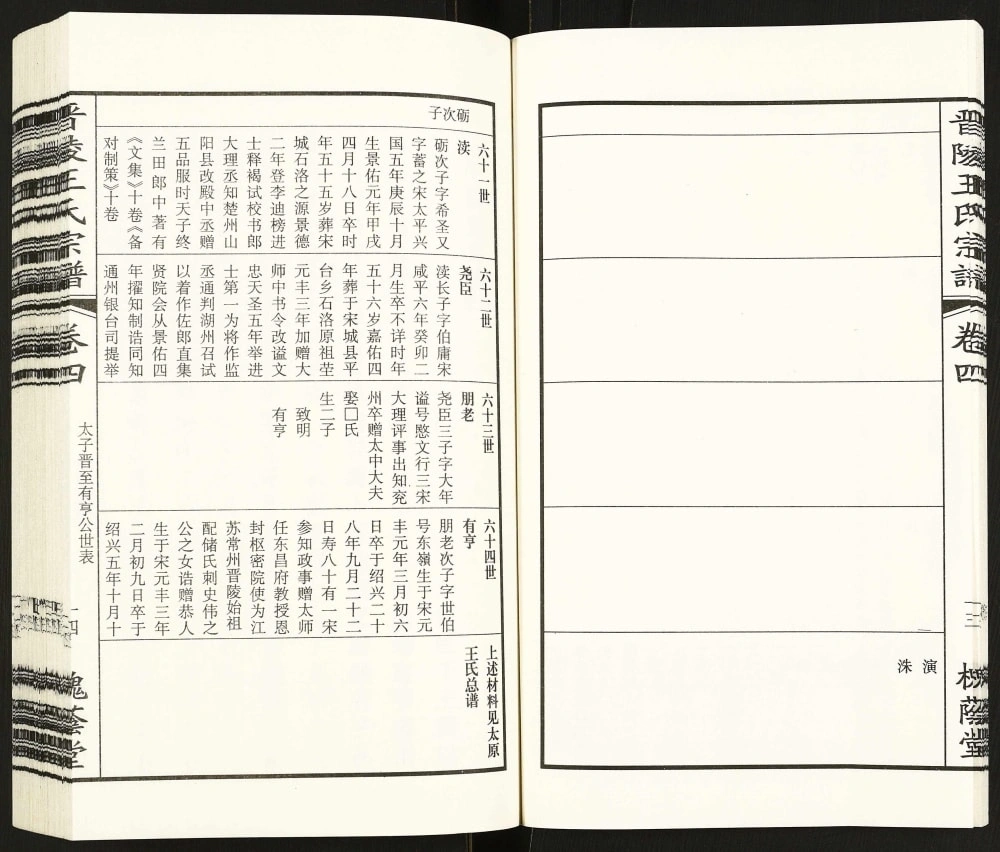 晋陵王氏宗谱
卷四
三
槐荫堂
演
洙
砺次子
六十一世
渎
砺次子字希圣又
字蓄之宋太平兴
国五年庚辰十月
生景佑元年甲戌
四月十八日卒时
年五十五岁葬宋
城石洛之源景德
二年登李迪榜进
士释褐试校书郎
大理丞知楚州山
阳县改殿中丞赠
五品服时天子终
兰田郎中著有
《文集》十卷《备
对制策》十卷
六十二世
尧臣
渎长子字伯庸宋
咸平六年癸卯二
月生卒不详时年
五十六岁嘉佑四
年葬于宋城县平
台乡石洛原祖茔
元丰三年加赠大
师中书令改谥文
忠天圣五年举进
士第一为将作监
丞通判湖州召试
以着作佐郎直集
贤院会从景佑四
年擢知制诰同知
通州银台司提举
六十三世
朋老
尧臣三子字大年
谥号愍文行三宋
大理评事出知兖
州卒赠太中大夫
娶□氏
生二子
致明
有亨
六十四世
有亨
朋老次子字世伯
号东嶺生于宋元
丰元年三月初六
日卒于绍兴二十
八年九月二十二
日寿八十有一宋
参知政事赠太师
任东昌府教授恩
封枢密院使为江
苏常州晋陵始祖
配储氏刺史伟之
公之女诰赠恭人
生于宋元丰三年
二月初九日卒于
绍兴五年十月十
上述材料见太原
王氏总谱
晋陵王氏宗谱
卷四
太子晋至有亨公世表
四
槐荫堂